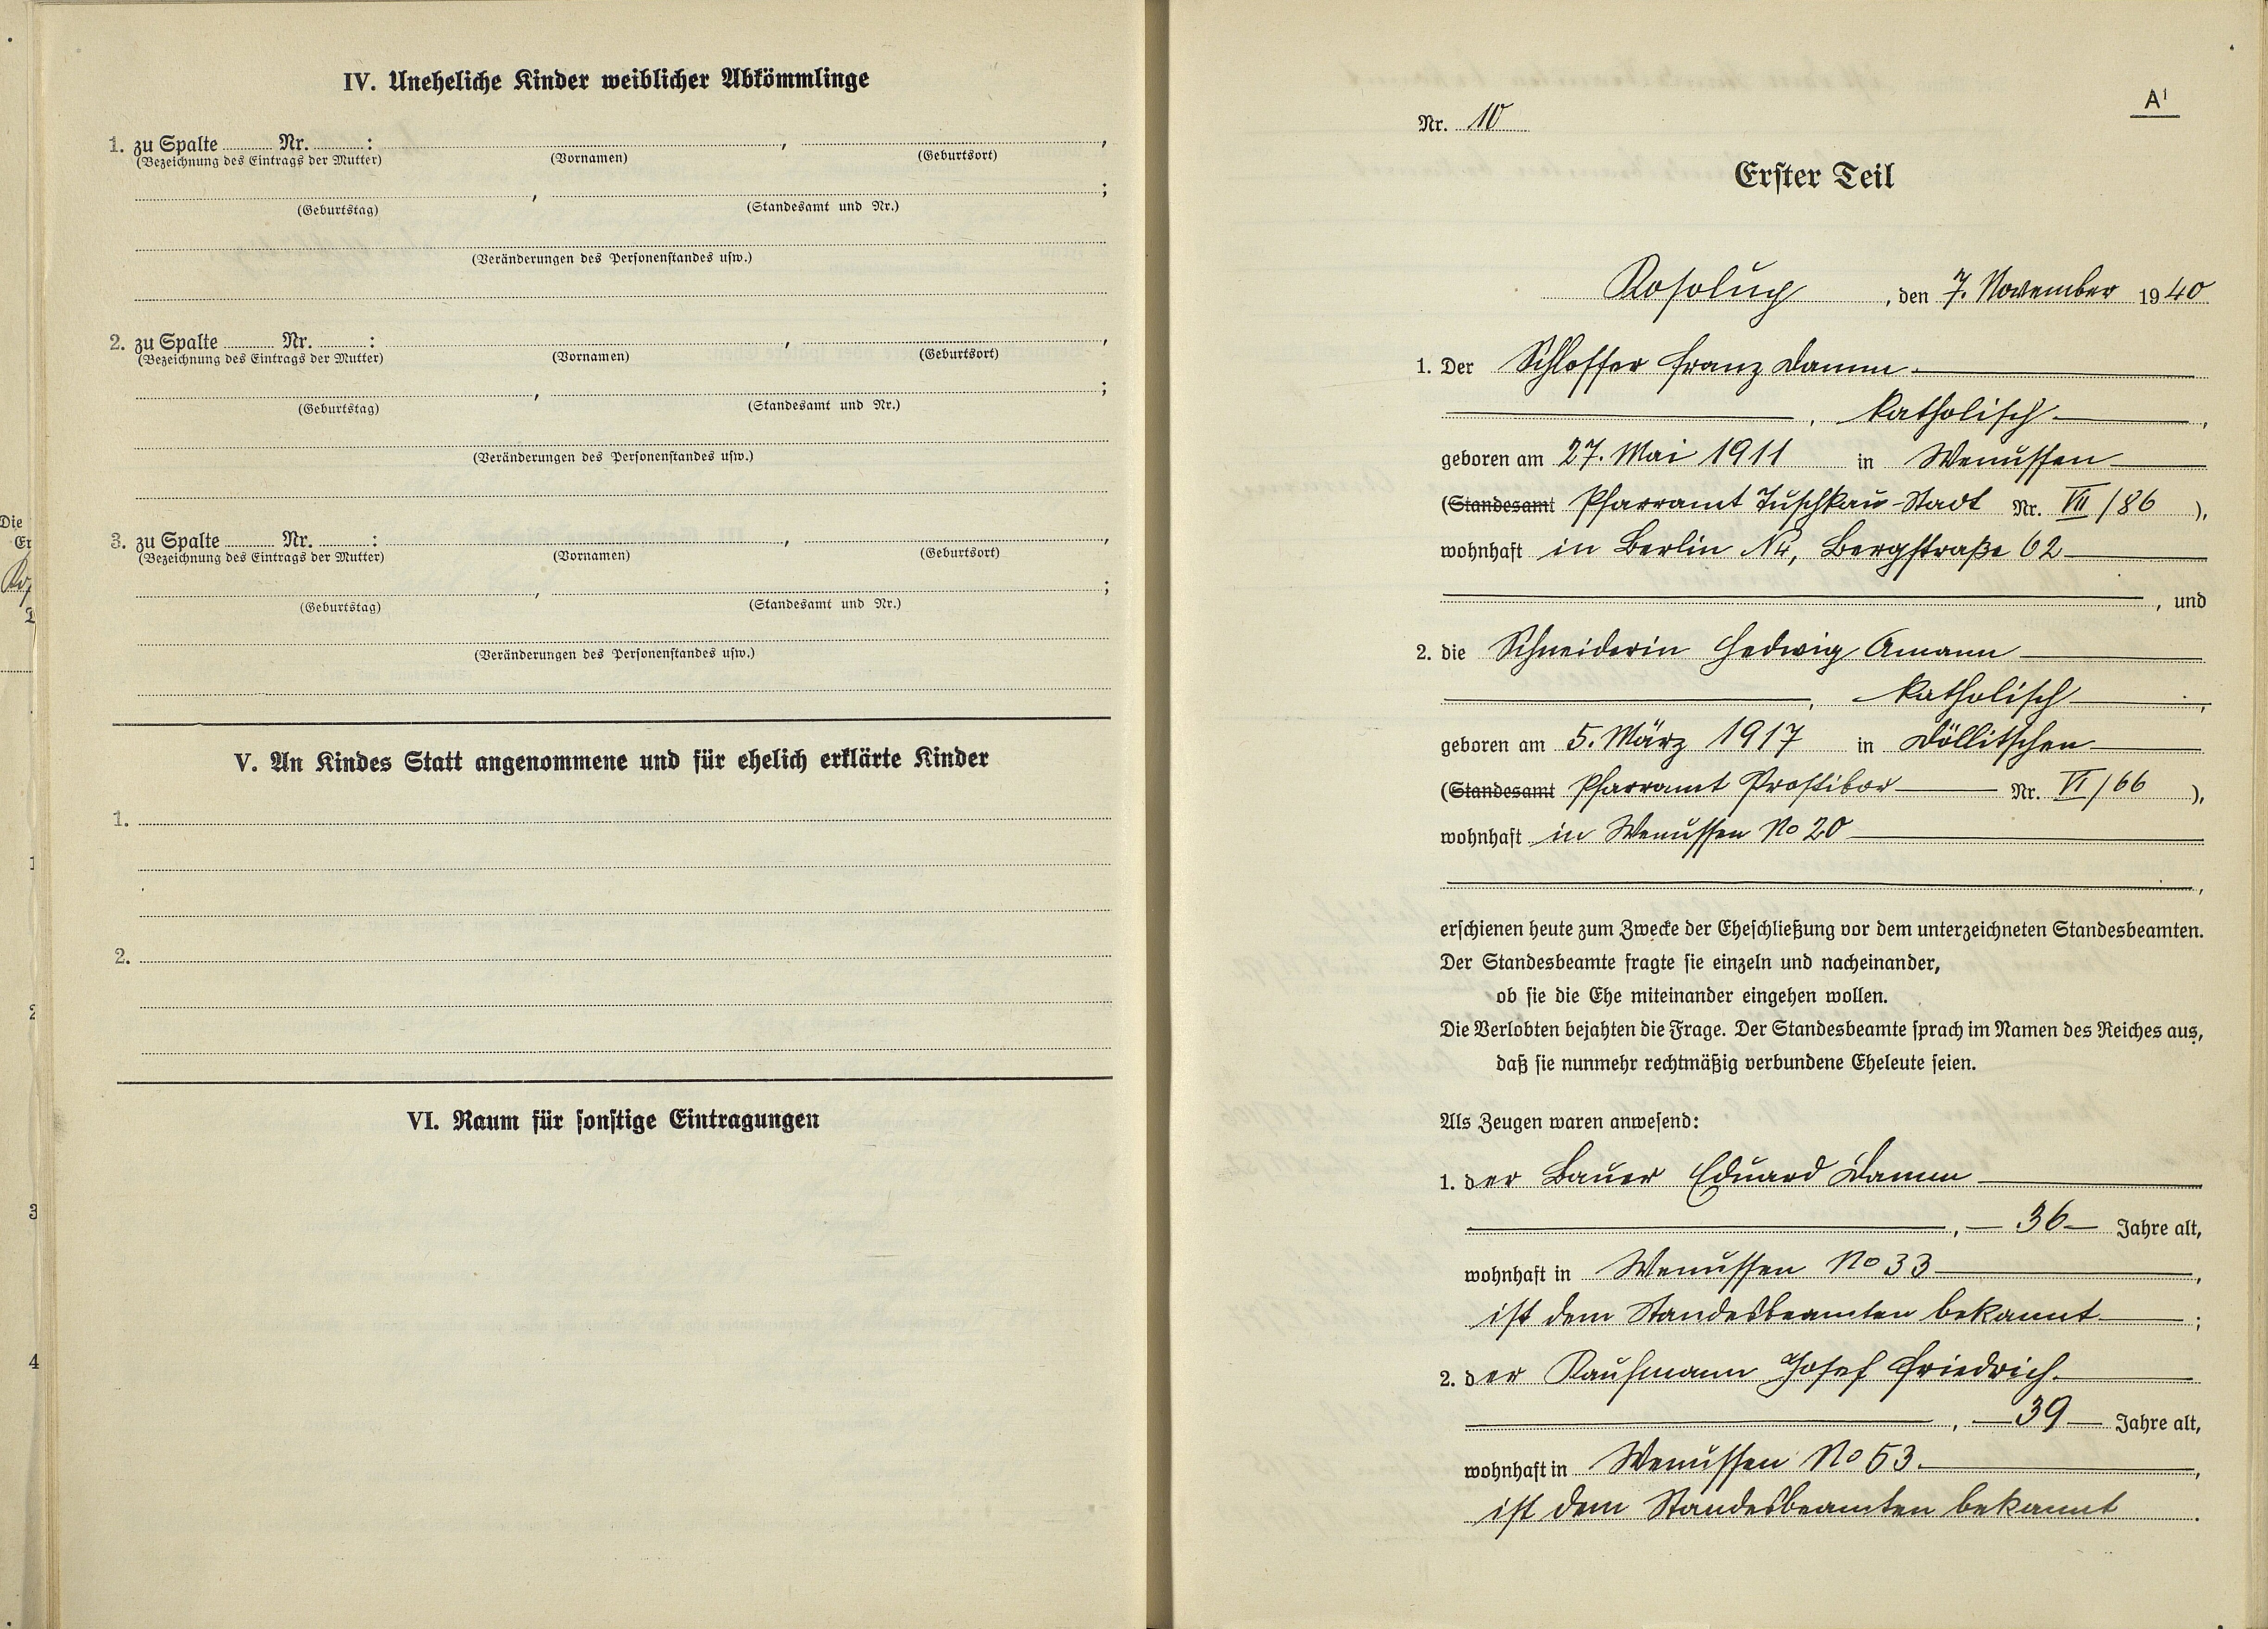 IV. Uneheliche Kinder weiblicher Abkömmlinge
1. zu Spalte ........ Nr. ........:
(Bezeichnung des Eintrags der Mutter) (Vornamen) (Geburtsort)
(Geburtstag) (Standesamt und Nr.)
(Veränderungen des Personenstandes usw.)
2. zu Spalte ........ Nr. ........:
(Bezeichnung des Eintrags der Mutter) (Vornamen) (Geburtsort)
(Geburtstag) (Standesamt und Nr.)
(Veränderungen des Personenstandes usw.)
3. zu Spalte ........ Nr. ........:
(Bezeichnung des Eintrags der Mutter) (Vornamen) (Geburtsort)
(Geburtstag) (Standesamt und Nr.)
(Veränderungen des Personenstandes usw.)
V. An Kindes Statt angenommene und für ehelich erklärte Kinder
1.
2.
VI. Raum für sonstige Eintragungen
A¹
Nr. 10
Erster Teil
Rosolup, den 7. November 1940
1. Der Schlosser Franz Damm
, katholisch,
geboren am 27. Mai 1911 in Wenussen
(Standesamt Pfarramt Tuschkau-Stadt Nr. VII/86),
wohnhaft in Berlin N4, Bergstraße 62
, und
2. die Schneiderin Hedwig Amann
, katholisch,
geboren am 5. März 1917 in Döllitschen
(Standesamt Pfarramt Prostibor Nr. VI/66),
wohnhaft in Wenussen No 20
,
erschienen heute zum Zwecke der Eheschließung vor dem unterzeichneten Standesbeamten.
Der Standesbeamte fragte sie einzeln und nacheinander,
ob sie die Ehe miteinander eingehen wollen.
Die Verlobten bejahten die Frage. Der Standesbeamte sprach im Namen des Reiches aus,
daß sie nunmehr rechtmäßig verbundene Eheleute seien.
Als Zeugen waren anwesend:
1. der Bauer Eduard Damm
, 36 Jahre alt,
wohnhaft in Wenussen No 33,
ist dem Standesbeamten bekannt;
2. der Kaufmann Josef Friedrich
, 39 Jahre alt,
wohnhaft in Wenussen No 53,
ist dem Standesbeamten bekannt.